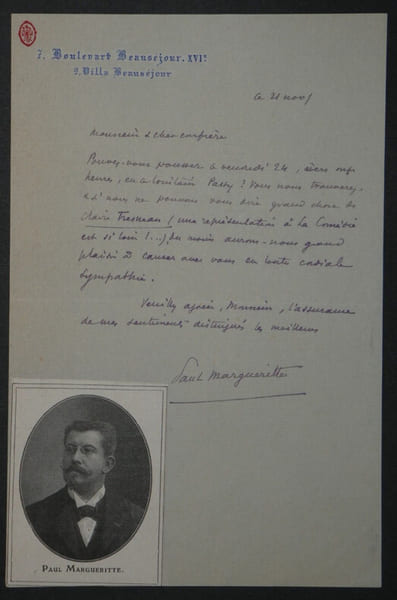 7, Boulevart Beauséjour. XVIe
9, Villa Beauséjour
ce 21 nov/
Monsieur & cher confrère
Pouvez-vous pousser à vendredi 24, vers onze
heures, en ce lointain Passy ? Vous nous trouverez,
& si nous ne pouvons vous dire grand chose de
Claire Fresneau (une représentation à la Comédie
est si loin !...), du moins aurons-nous grand
plaisir à causer avec vous en toute cordiale
sympathie.
Veuillez agréer, Monsieur, l'assurance
de mes sentiments distingués les meilleurs
Paul Margueritte
PAUL MARGUERITTE.